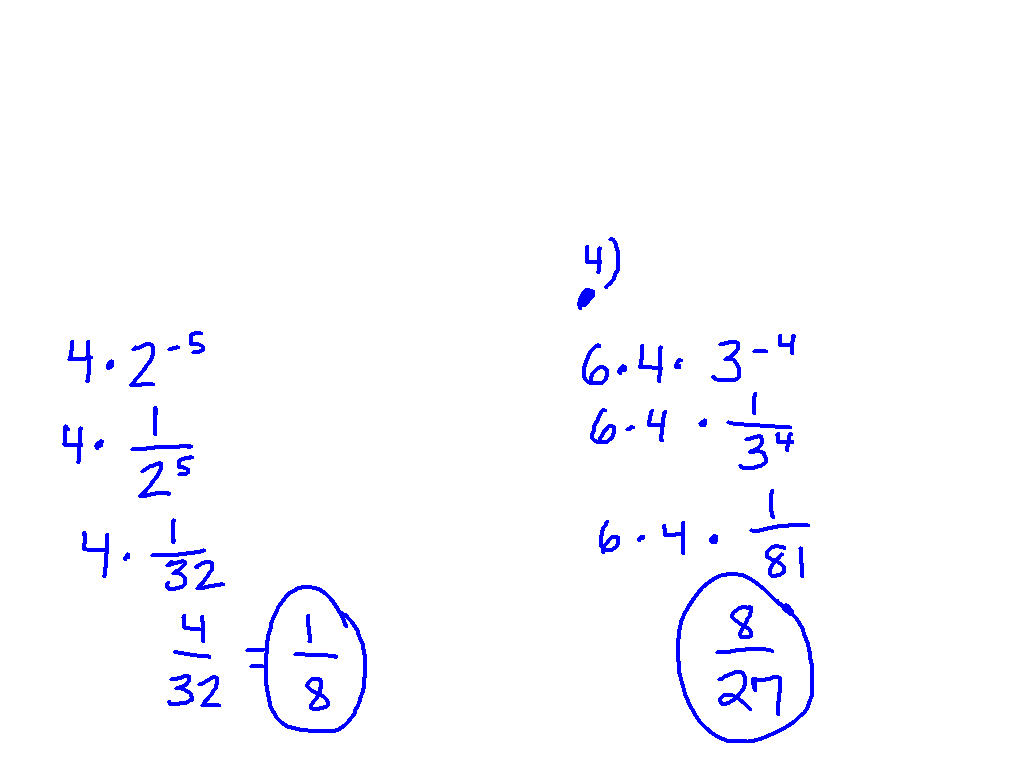 4 · 2⁻⁵
4 · 1/2⁵
4 · 1/32
4/32 = 1/8
4)
6 · 4 · 3⁻⁴
6 · 4 · 1/3⁴
6 · 4 · 1/81
8/27